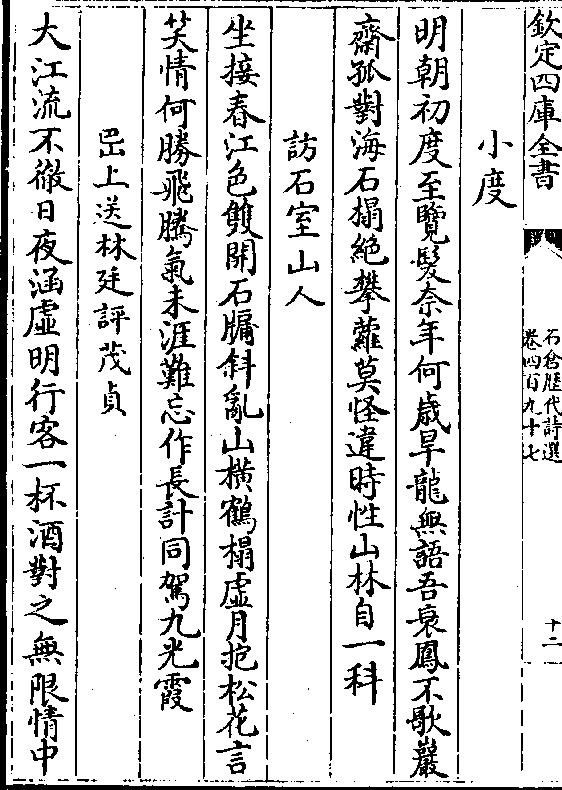 欽定四庫全書
石倉歷代詩選
卷四百九十七
十二
小度
明朝初度至覽髮奈年何歲旱龍無語吾衰鳳不歌巖
齋孤對海石榻絶攀蘿莫怪違時性山林自一科
訪石室山人
坐接春江色雙開石牖斜亂山橫鶴榻虛月抱松花言
笑情何勝飛騰氣未涯難忘作長計同駕九光霞
巴上送林廷評茂貞
大江流不徹日夜涵虛明行客一杯酒對之無限情中